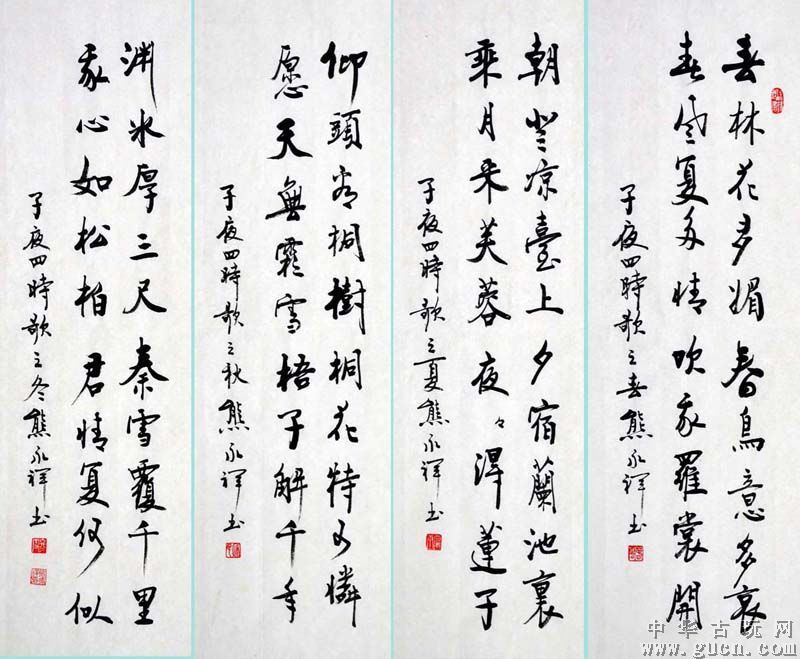 春林花多媚春鳥意多哀
春风复多情吹我羅裳開
子夜四時歌之春熊永书
朝登凉臺上夕宿蘭池裏
乘月采芙蓉夜々得蓮子
子夜四時歌之夏熊永书
仰頭看桐樹桐花特可憐
愿天無霜雪梧子解千年
子夜四時歌之秋熊永书
渊冰厚三尺素雪覆千里
我心如松柏君情复何似
子夜四時歌之冬熊永书
中华古玩网
www.gucn.com